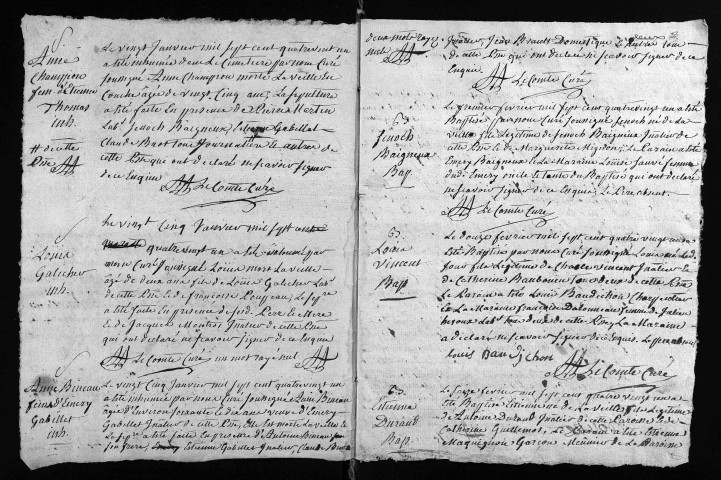 Anne
Champion
fem d'Etienne
Thomas
inh.
Le vingt Janvier mil sept cent quatrevingt un
a eté inhumée dans le Cimetiere par nous Curé
soussigné Anne Champion morte La veille de
Couche agée de vingt Cinq ans, La sepulture
a eté faite En presence de Pierre Martin
Labr Jenoch Baigneux, Gabillet
Claude les autres de
cette Psse qui ont declaré ne scavoir signer
de ce Enquis
Le Comte Curé
# de cette
Psse
Louis
Galicher
inh.
Le vingt Cinq Janvier mil sept
quatrevingt un a eté inhumé par
nous Curé soussigné Louis mort La veille
agé de deux ans fils de Louis Galicher Labr
de cette Psse et de Françoise Pouzeau, Le sepre
a eté faite En presence de Pere Le Mere
et de Jacques Montas Jnalier de cette Psse
qui ont declaré ne scavoir signer de ce Enquis
Le Comte Curé un mot rayé nul
Anne Bineau
femme d'Emery
Gabillet
inh.
Le vingt Cinq Janvier mil sept cent quatrevingt un
a eté inhumée par nous Curé soussigné Anne Bineau
agée d'Environ soixante et dix ans veuve d'Emery
Gabillet Jnalier de cette Psse, Elle est morte La veille
La sepre a eté faite En presence d'Antoine Bineau
son frere, Etienne Gabillet Jnalier, Claude
deux mots rayez
nuls
Jnalier, Jean Brault Domestique Les autres tous
de cette Psse qui ont declaré ne scavoir signer de ce
Enquis
Le Comte Curé
Jenoch
Baigneux
Bap.
Le premier fevrier mil sept cent quatrevingt un a eté
Baptisé par nous Curé soussigné Jenoch né de La
veille fils Legitime de Jenoch Baigneux Jnalier de
cette Psse et de Marguerite Mignon, Le Parain a eté
Emery Baigneux et La Maraine Louise
dudt Emery oncle et tante du Baptisé qui ont declaré
ne scavoir signer de ce Enquis, Le Pere absent.
Le Comte Curé
Louis
Vincent
Bap.
Le douze fevrier mil sept cent quatre vingt un a
eté Baptisé par nous Curé soussigné Louis né Led
Jour fils Legitime de Charle Vincent Jnalier et
de Catherine tous deux de cette Psse
Le Parain a eté Louis Baudichon Charpentier
et La Maraine françoise femme de Julien
Labr tous deux de cette Psse, La Maraine
a declaré ne scavoir signer de ce Enquis. Le Pere absent
louis Baudichon
Le Comte Curé
Etienne
Durand
Bap.
Le seize fevrier mil sept cent quatre vingt un a
eté Baptisé Etienne né de La veille fils Legitime
de Antoine Durand Jnalier de cette Paroisse et de
Catherine Guillemot. Le Parain a eté Etienne
Maquignon Garçon Meunier et La Maraine